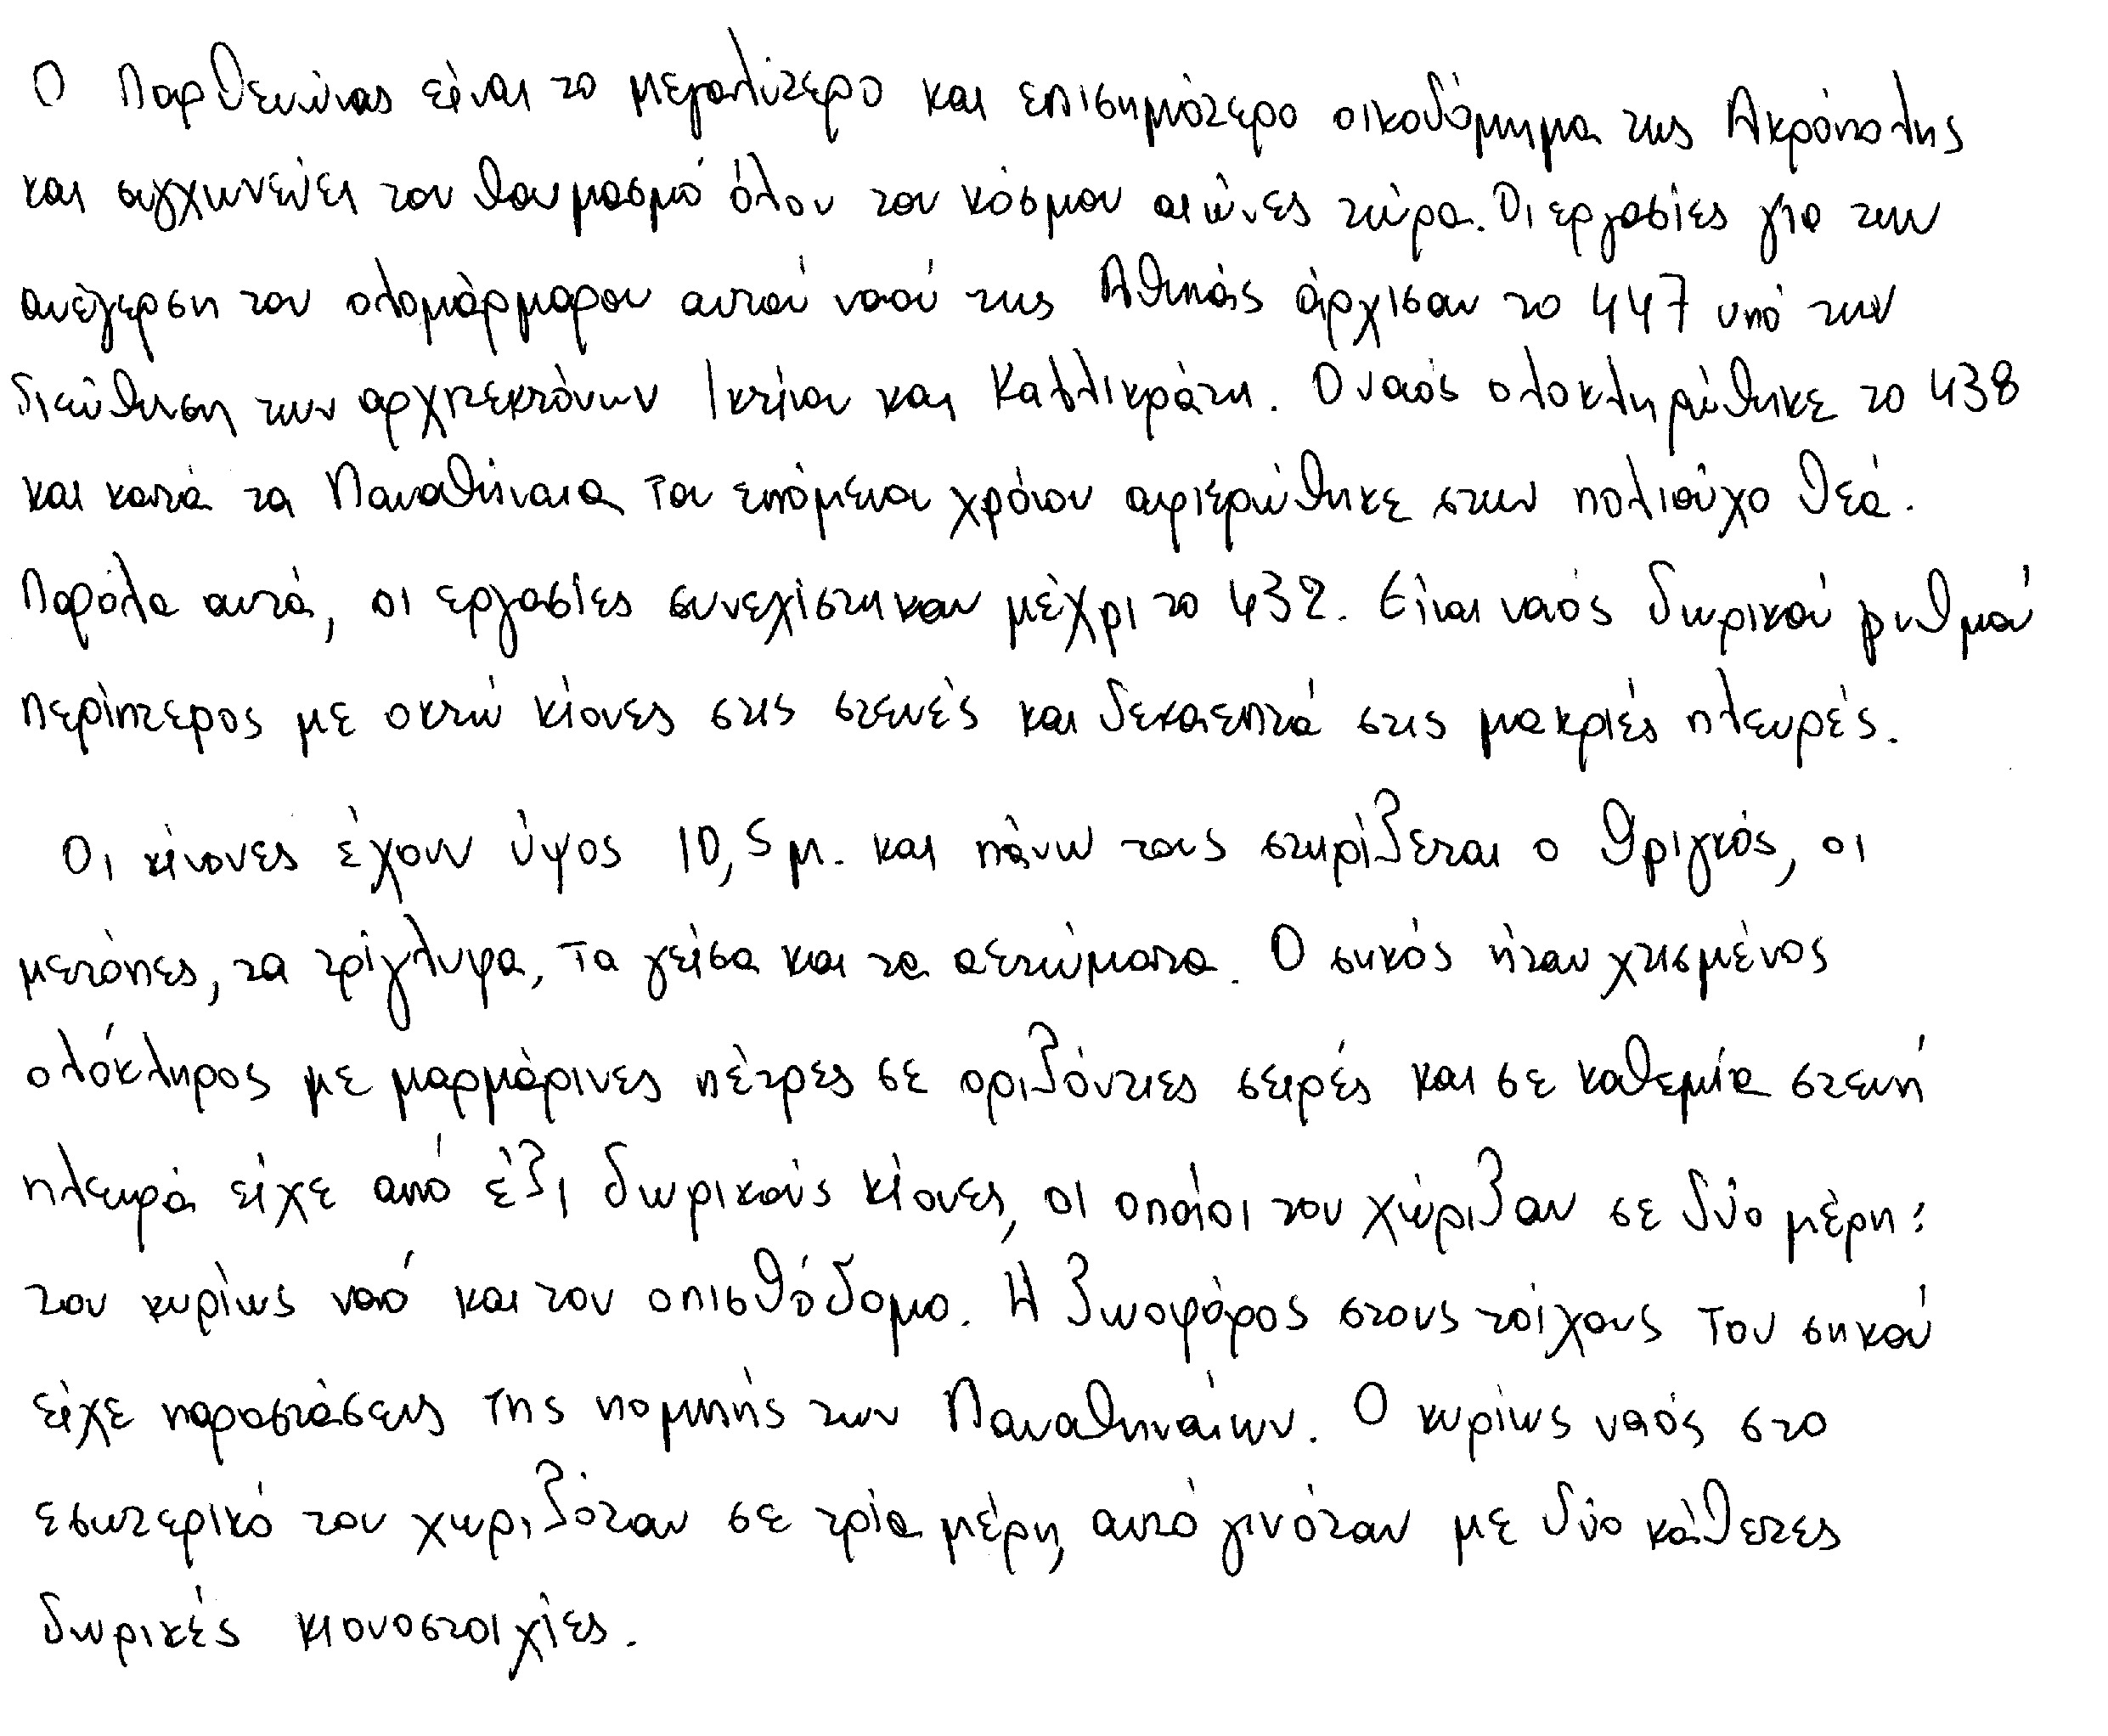 Ο Παρθενώνας είναι το μεγαλύτερο και επισημότερο οικοδόμημα της Ακρόπολης
και συγχωνεύει τον θαυμασμό όλου του κόσμου αιώνες τώρα. Οι εργασίες για την
ανέγερση του ολομάρμαρου αυτού ναού της Αθηνάς άρχισαν το 447 υπό την
διεύθυνση των αρχιτεκτόνων Ικτίνου και Καλλικράτη. Ο ναός ολοκληρώθηκε το 438
και κατά τα Παναθήναια του επόμενου χρόνου αφιερώθηκε στην πολιούχο θεά.
Παρόλα αυτά, οι εργασίες συνεχίστηκαν μέχρι το 432. Είναι ναός δωρικού ρυθμού
περίπτερος με οκτώ κίονες στις στενές και δεκαεπτά στις μακριές πλευρές.
Οι κίονες έχουν ύψος 10,5 μ. και πάνω τους στηρίζεται ο θριγκός, οι
μετόπες, τα τρίγλυφα, τα γείσα και τα αετώματα. Ο σηκός ήταν χτισμένος
ολόκληρος με μαρμάρινες πέτρες σε οριζόντιες σειρές και σε καθεμία στενή
πλευρά είχε από έξι δωρικούς κίονες, οι οποίοι τον χώριζαν σε δύο μέρη:
τον κυρίως ναό και τον οπισθόδομο. Η ζωοφόρος στους τοίχους του σηκού
είχε παραστάσεις της πομπής των Παναθηναίων. Ο κυρίως ναός στο
εσωτερικό του χωριζόταν σε τρία μέρη, αυτό γινόταν με δύο κάθετες
δωρικές κιονοστοιχίες.